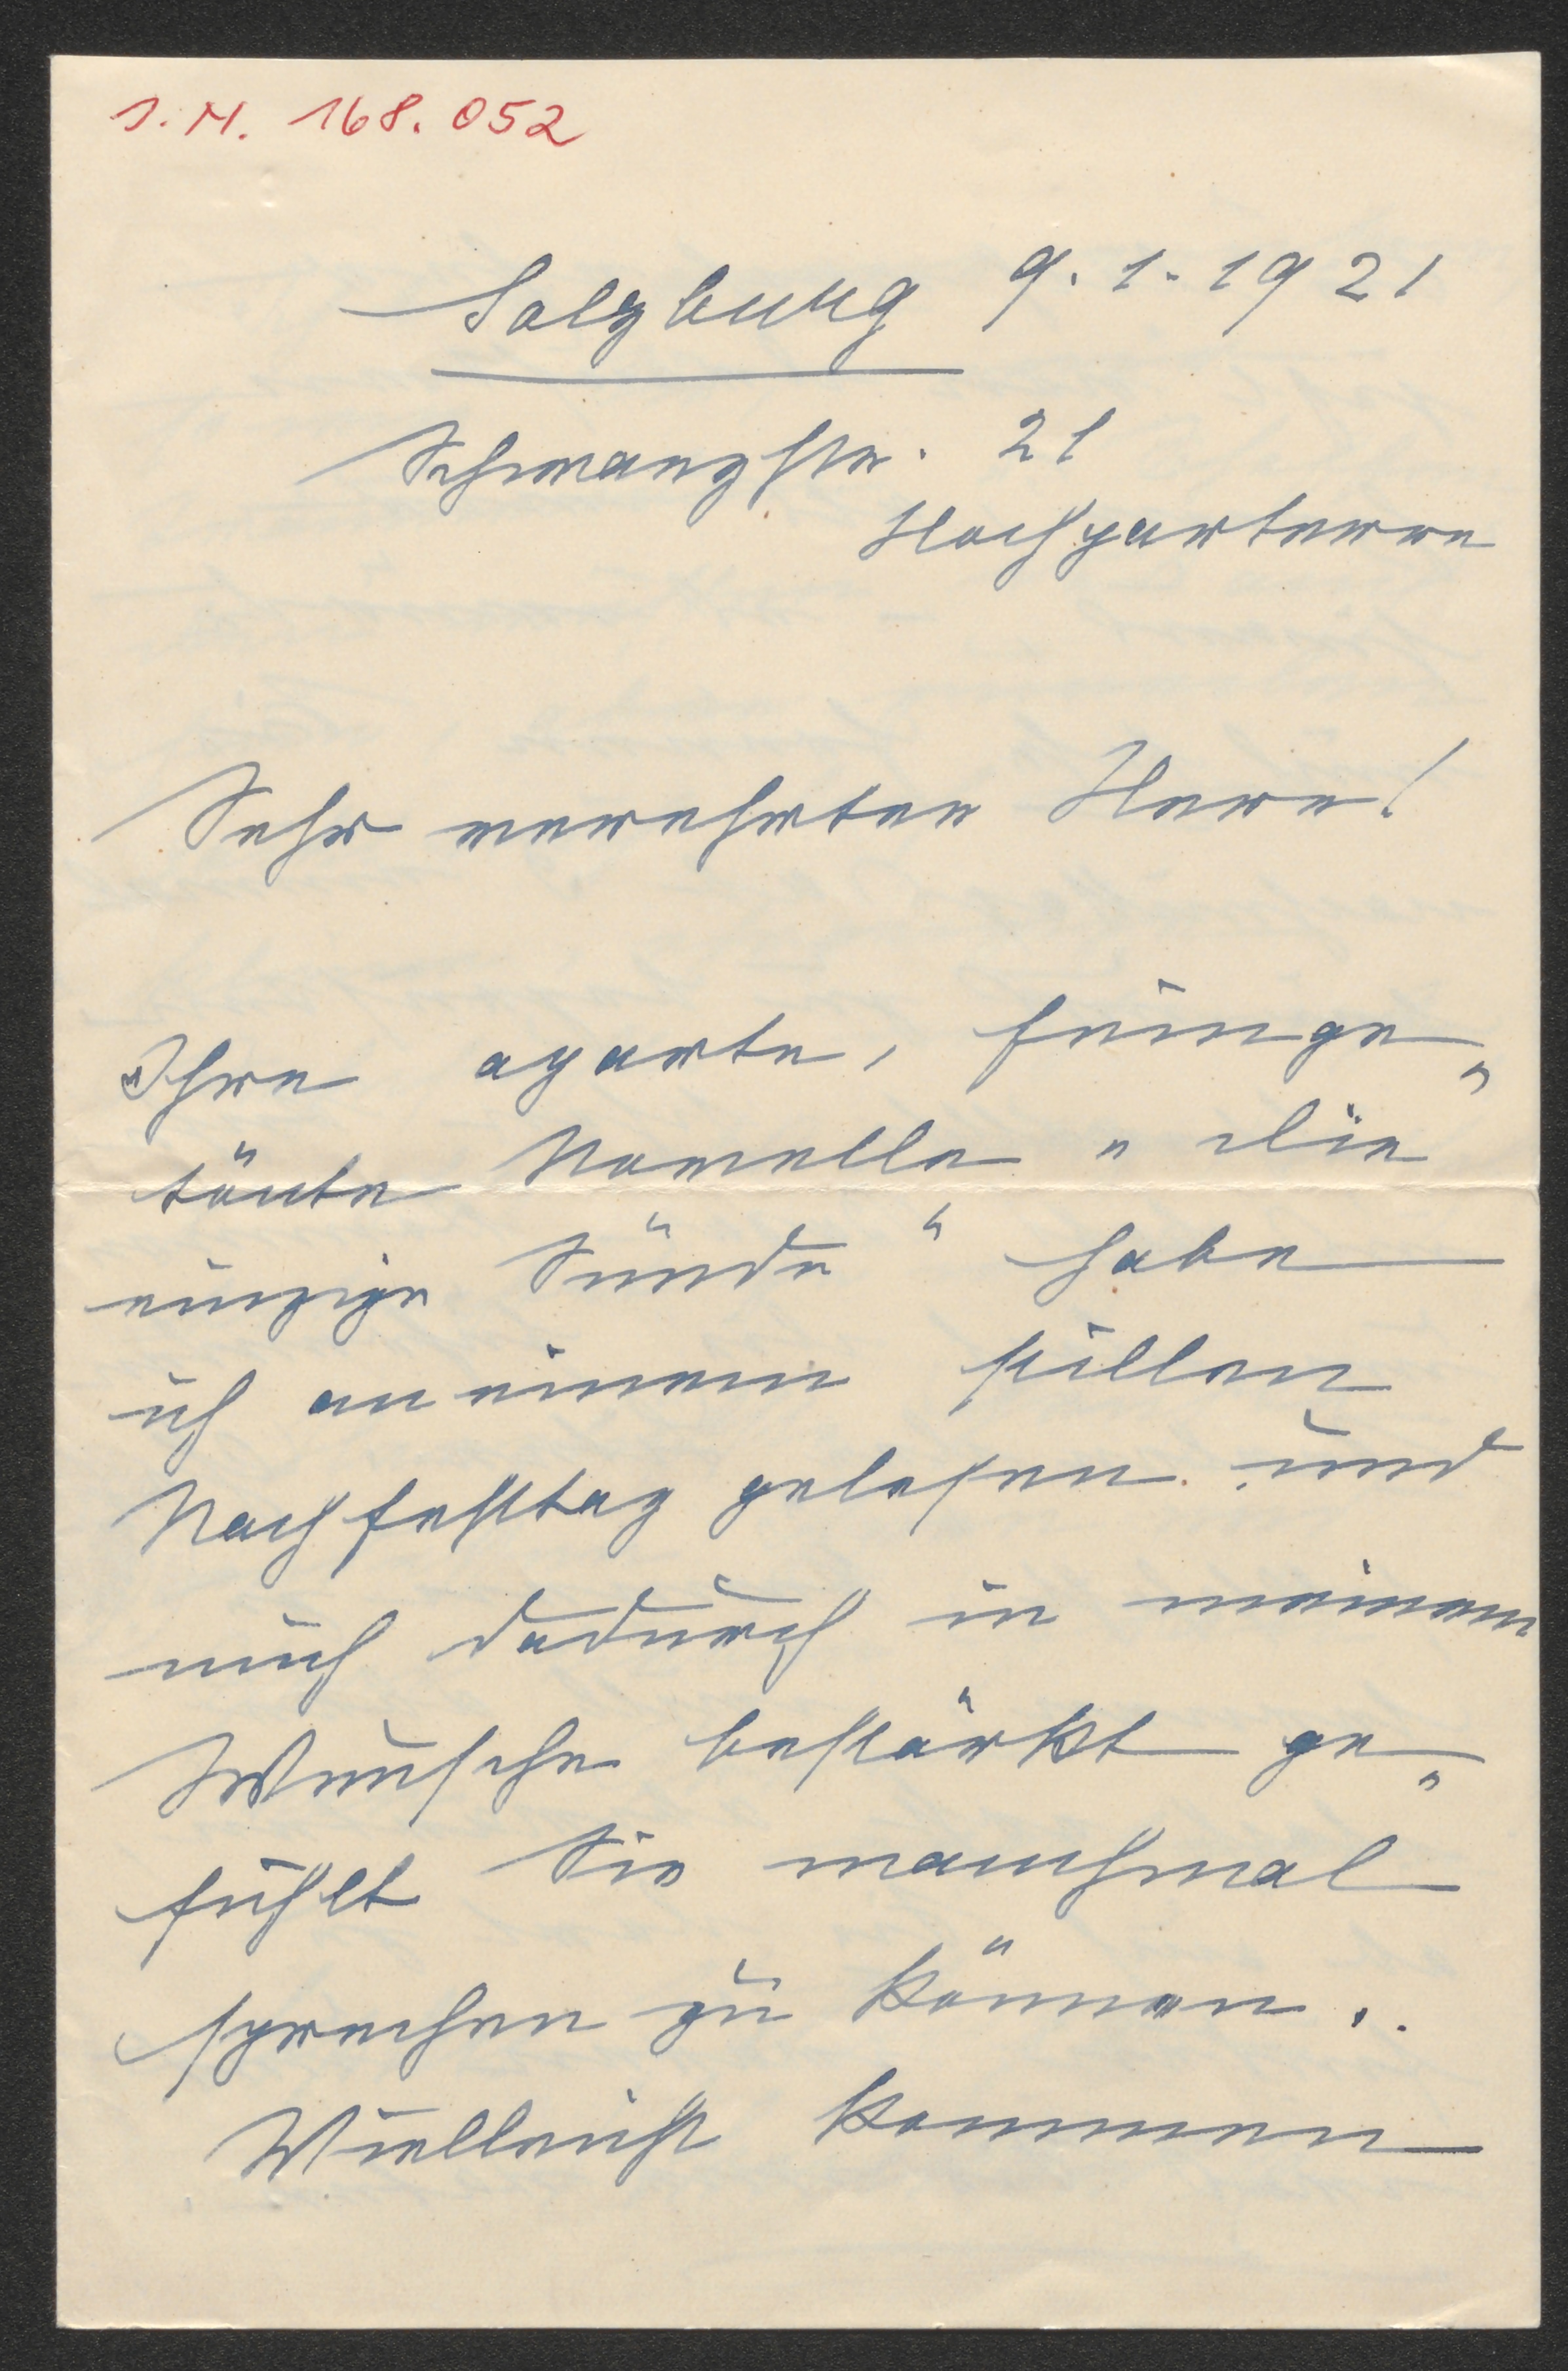 J.N. 168.052
Salzburg 9.1.1921
Schwarzstr. 21
Hochparterre
Sehr verehrter Herr!
Ihre aparte, feinge„
tönte Novelle „Die
einzige Sünde“ habe
ich an einem stillen
Nachfesttag gelesen und
mich dadurch in meinem
Wunsche bestärkt ge„
fühlt Sie manchmal
sprechen zu können.
Vielleicht kommen